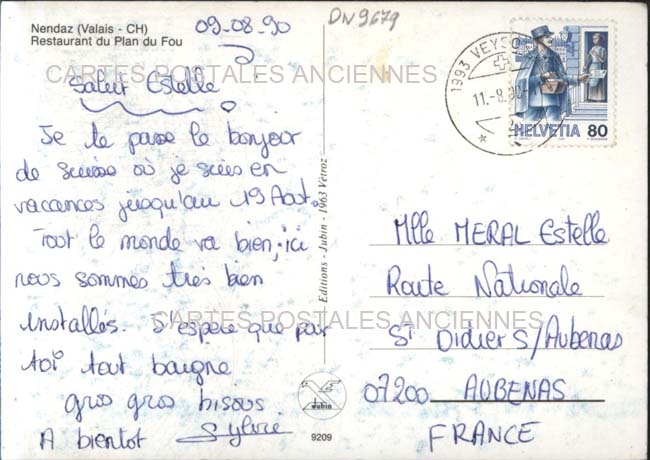 Nendaz (Valais - CH)
Restaurant du Plan du Fou
09-08-90
DN9679
CARTES POSTALES ANCIENNES
Salut Estelle
Je te passe le bonjour
de suisse où je suis en
vacances jusqu'au 19 Aout.
Tout le monde va bien, ici
nous sommes très bien
installés. J'espère que par
toi tout baigne
gros gros bisous
A bientot Sylvie
Editions - Jubin - 1963 Vétroz
Jubin
9209
1993 VEYSO
11.-8.90
HELVETIA 80
Mlle MERAL Estelle
Route Nationale
CARTES POSTALES ANCIENNES
St Didier S/Aubenas
07200 AUBENAS
FRANCE